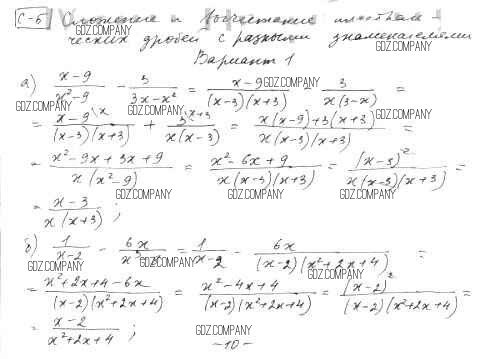 С-6 Сложение и вычитание алгебраи-
ческих дробей с разными знаменателями
Вариант 1
а) (x-9)/(x²-9) - 3/(3x-x²) = (x-9)/((x-3)(x+3)) - 3/(x(3-x)) =
= (x-9)\x/((x-3)(x+3)) + 3\x+3/(x(x-3)) = (x(x-9)+3(x+3))/(x(x-3)(x+3)) =
= (x²-9x+3x+9)/(x(x²-9)) = (x²-6x+9)/(x(x-3)(x+3)) = (x-3)²/(x(x-3)(x+3)) =
= (x-3)/(x(x+3)) ;
б) 1/(x-2) - 6x/ = 1/(x-2) - 6x/((x-2)(x²+2x+4)) =
= (x²+2x+4-6x)/((x-2)(x²+2x+4)) = (x²-4x+4)/((x-2)(x²+2x+4)) = (x-2)²/((x-2)(x²+2x+4)) =
= (x-2)/(x²+2x+4) ;
-10-
GDZ.COMPANY
GDZ.COMPANY
GDZ.COMPANY
GDZ.COMPANY
GDZ.COMPANY
GDZ.COMPANY
GDZ.COMPANY
GDZ.COMPANY
GDZ.COMPANY
GDZ.COMPANY
GDZ.COMPANY
GDZ.COMPANY
GDZ.COMPANY
GDZ.COMPANY